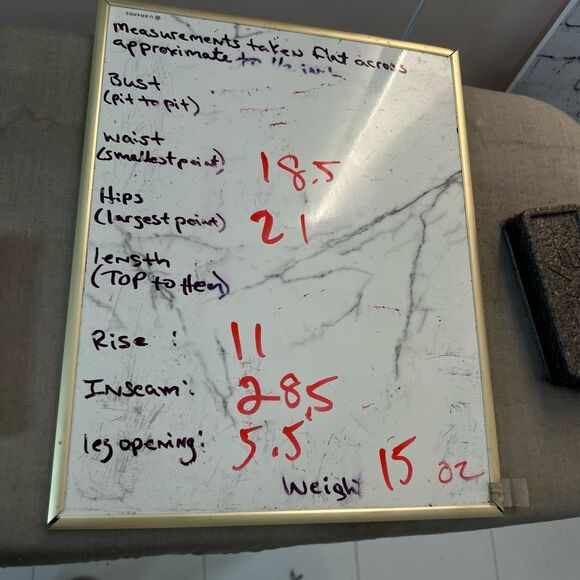 U BRANDS
Measurements taken flat across
approximate to
Bust
(pit to pit)
Waist
(smallest point) 18.5
Hips
(largest point) 21
length
(TOP to Hem)
Rise : 11
Inseam: 28.5
leg opening: 5.5
Weight 15 oz